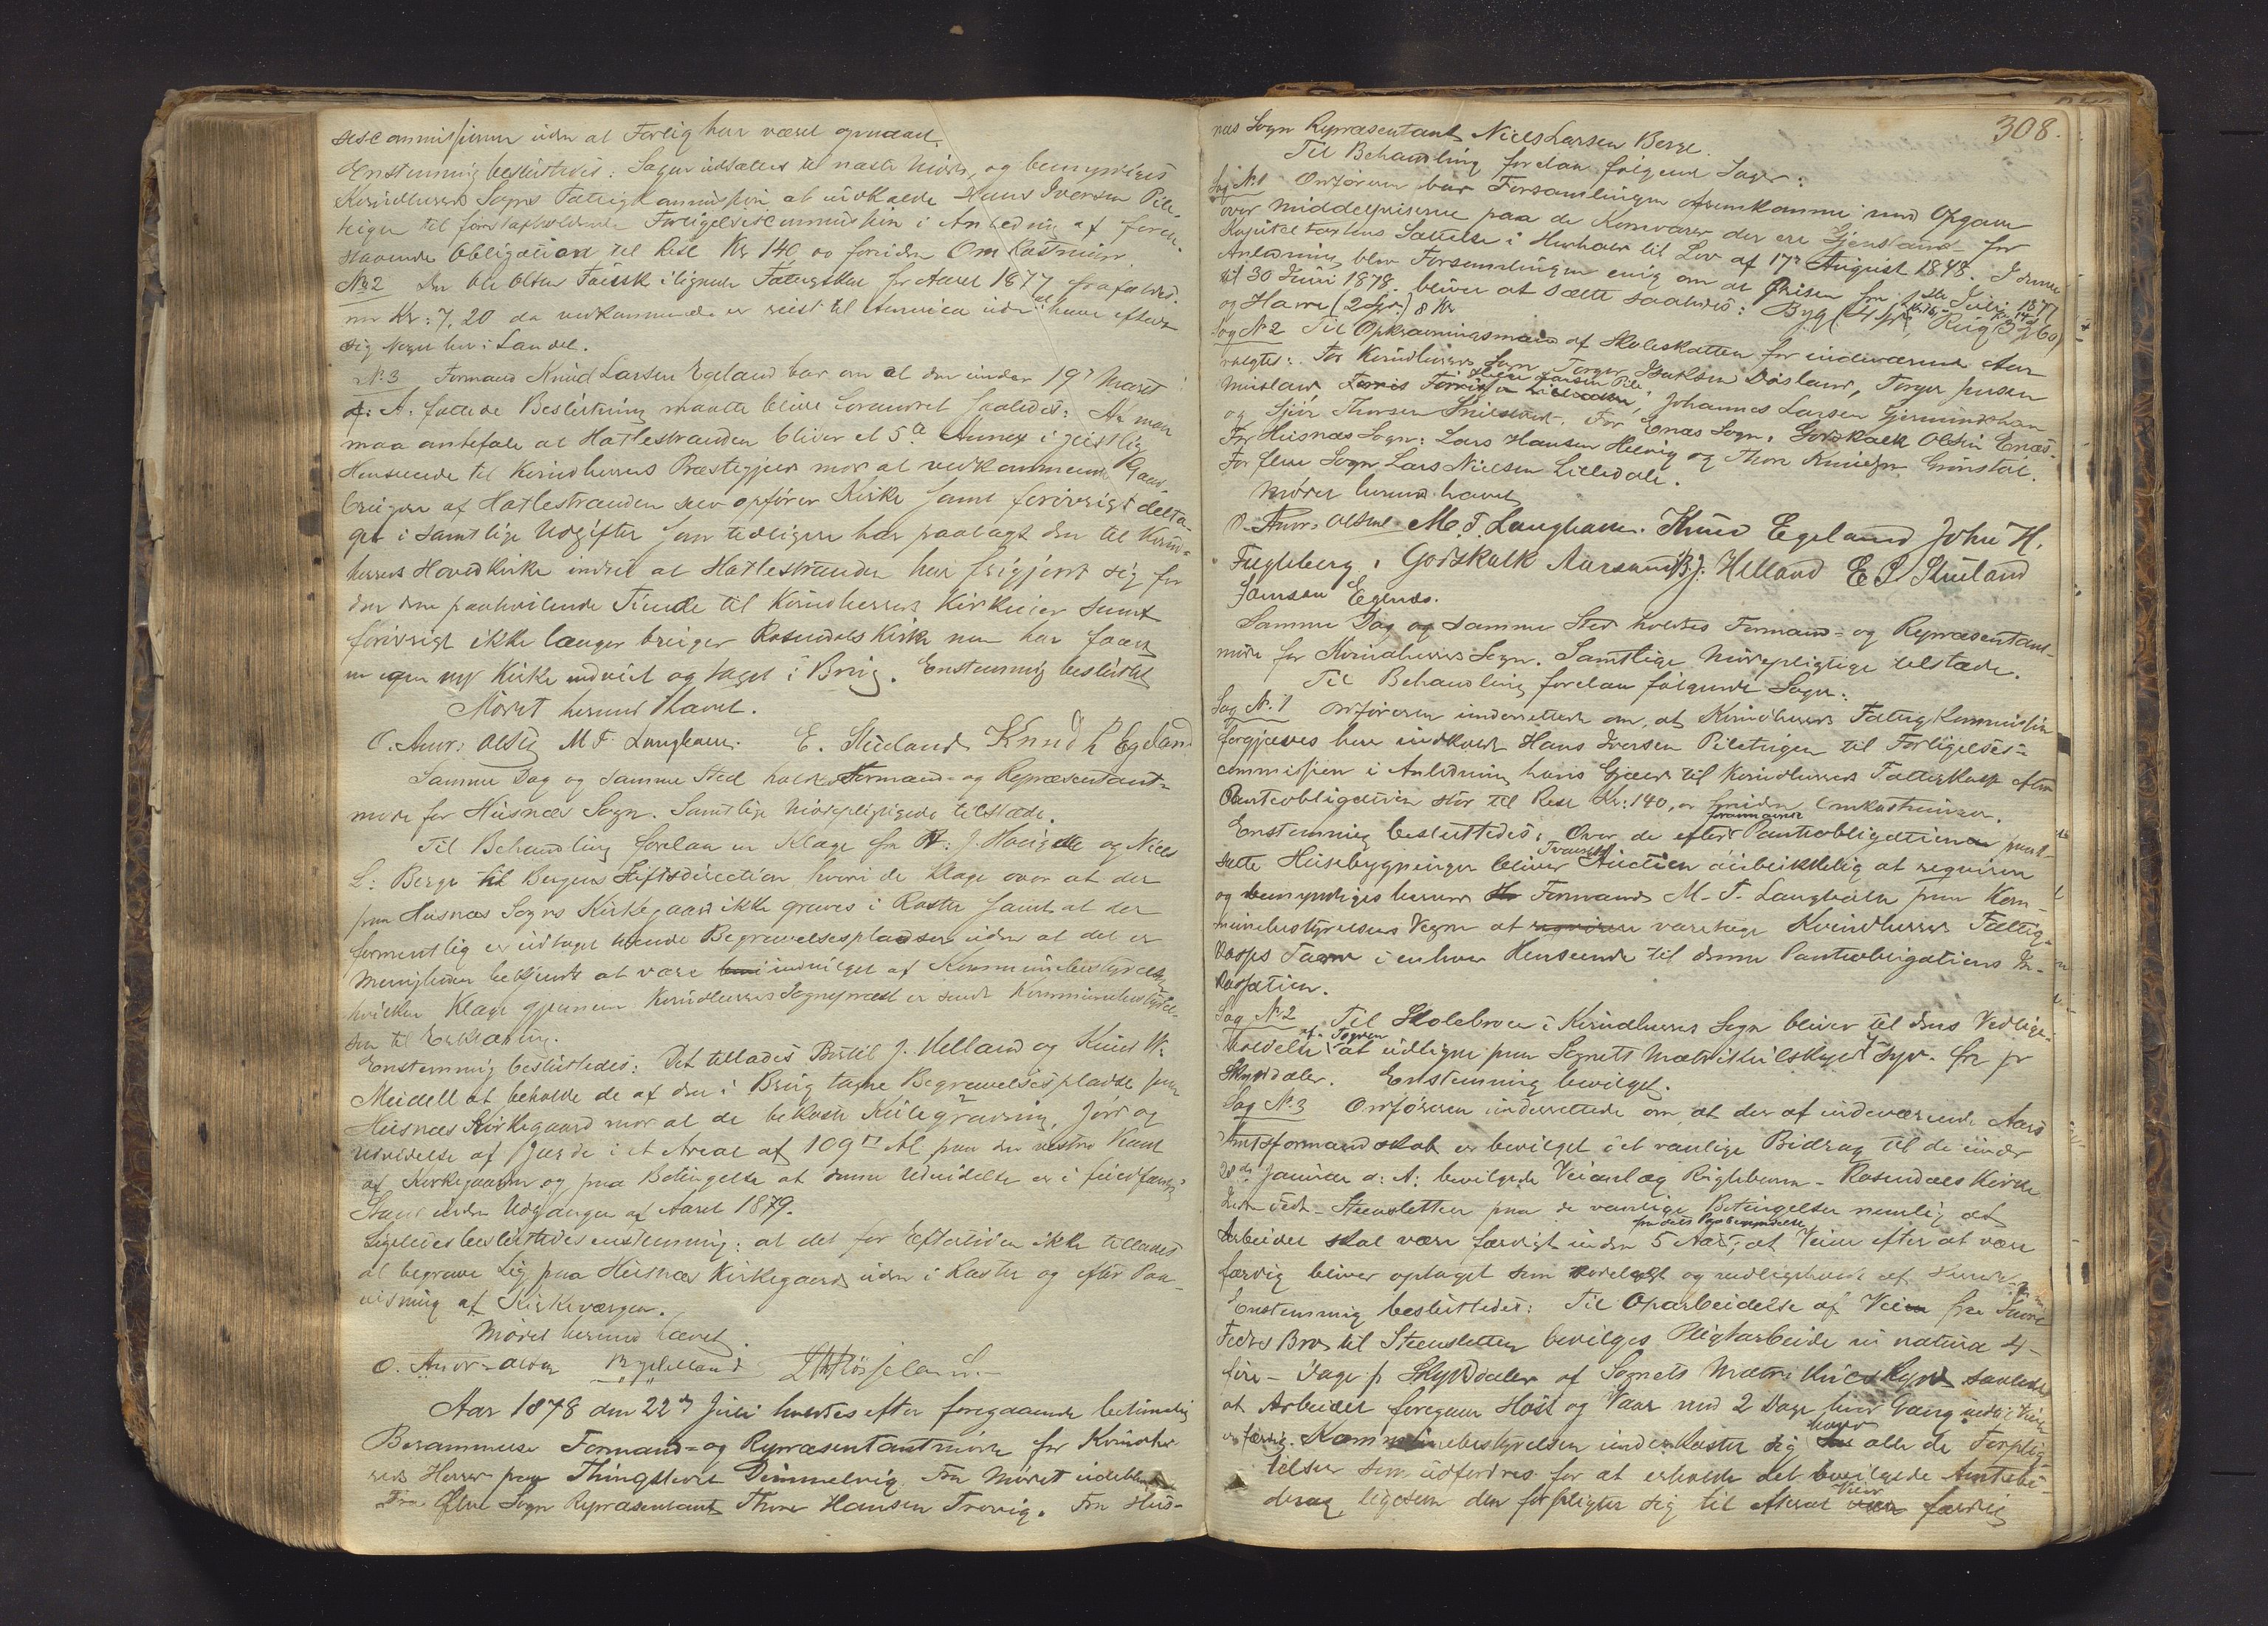 sescommissionen uden at Forlig har været opnaaet.
Enstemmig besluttedes: Sagen udsættes til næste Møde, og bemyndiges
Kvindherreds Sogns Fattigkommission at indkalde Hans Iversen Pile-
teigen til førstafholdende Forligelsescommission i Anledning af foren-
staaende Obligation til Rest Kr 140,00 foruden Omkostninger.
No 2 Den Ole Olsen Taösk ilignede Fattigskat for Aaret 1877 frafaldes.
med Kr: 7,20 da vedkommende er reist til America uden at have efterladt
sig Noget her i Landet.
No 3 Formand Knud Larsen Egeland bar om at den under 19de Marts
d: A: fattede Beslutning maatte blive forandret saaledes: At man
maa anbefale at Hatlestranden bliver et 5te Annex i geistlig
Henseende til Kvindherreds Præstegjeld mod at vedkommende Gaard-
brugere af Hatlestranden selv opfører Kirke samt forøvrigt delta-
ger i samtlige Udgifter som tidligere har paalagt den til Kvind-
herreds Hovedkirke indtil at Hatlestranden har frigjort sig for
den dem paahvilende Tiende til Kvindherreds Kirkeeier samt
forøvrigt ikke længer bruger Rosendals Kirke men har faaet
en egen ny Kirke indviet og taget i Brug. Enstemmig besluttet
Mødet hermed hævet.
O. Andr: Olsen M. T. Langhelm. E. Skeeland Knud L Egeland
Samme Dag og samme Sted holdtes Formand- og Repræsentant-
møde for Husnæs Sogn. Samtlige Mødepligtigede tilstæde.
Til Behandling forelaa en Klage fra B: J. Hoeigelle og Niels
L: Berge til Bergens Stiftsdirection hvori de klage over at der
paa Husnæs Sogns Kirkegaard ikke graves i Rader samt at der
formentlig er udtaget tvende Begravelsespladser uden at det er
Menigheden bekjendt at være indvilget af Kommunebestyrelsen
hvilken Klage gjennem Kvindherreds Sognepræst er sendt Kommunebestyrel-
sen til Erklæring.
Enstemmig besluttedes: Det tillades Botel J. Helland og Knud W:
Meidell at beholde de af dem i Brug tagne Begravelsesplads paa
Husnæs Kirkegaard mod at de bekoste Kulegravning, Jord og
Udvidelse af Gjærde i et Areal af 109 □ Al paa den vestre Kant
af Kirkegaarden og paa Betingelse at denne Udvidelse er i fuldfærdig
Stand inden Udgangen af Aaret 1879.
Ligeledes besluttedes enstemmig: at det for Eftertiden ikke tillades
at begrave Lig paa Husnæs Kirkegaard uden i Rader og efter Paa-
visning af Kirkeværgen.
Mødet hermed hævet
O. Andr: Olsen B. J. Helland
Aar 1878 den 22de Juli holdtes efter foregaaende betimelig
Berammelse Formand- og Repræsentantmøde for Kvindher-
reds Herred paa Thingstedet Dimmelvig. Fra Mødet udeblev
Fra Ølve Sogn Repræsentant Thore Hansen Trovig. Fra Hus-
308.
næs Sogn Repræsentant Niels Larsen Berge.
Til Behandling forelaa følgende Sager:
Sag No 1 Ordføreren bar Forsamlingen fremkomme med Opgave
over Middelpriserne paa de Kornvarer der ere Gjenstand for
Kapitelstaxtens Sættelse i Henhold til Lov af 17de August 1848. I denne
Anledning blev Forsamlingen enig om at Prisen fra 1ste Juli 1877
til 30 Juni 1878. bliver at sætte saaledes: Byg (4 Spd) Kr 14, Rug (3 60)
og Havre (2 Spd.) 8 Kr
Sag No 2 Til Opkrævningsmænd af Skoleskatten for indeværende Aar
valgtes: For Kvindherreds Sogn Torger Isaksen Døsland, Torger Jensen
Mirland, Iver Larsen Pile, Johannes Larsen Gjermundshavn
og Sjur Thorsen Snilstveit. For Enæs Sogn: Godskalk Olsen Enæs-
For Husnæs Sogn: Lars Hansen Helvig og Thore Knudsen Grønstøl.
For Ølve Sogn Lars Nielsen Lilledale.
Mødet hermed hævet
O. Andr: Olsen M. T. Langhelm. Knud Egeland John H.
Fugleberg. Godskalk Aarsand B. J: Helland E S Skeeland
Jansen Egenes.
Samme Dag og samme Sted holdtes Formand- og Repræsentant-
møde for Kvindherreds Sogn. Samtlige Mødepligtige tilstæde.
Til Behandling forelaa følgende Sager:
Sag No. 1 Ordføreren underrettede om, at Kvindherreds Fattigkommission
forgjæves har indkaldt Hans Iversen Pileteigen til Forligelses-
commission i Anledning hans Gjæld til Kvindherreds Fattigkasse efter
Panteobligation stor til Rest Kr: 140,00 foruden Omkostninger.
Enstemmig besluttedes: Over de efter forannævnte Panteobligation pant-
satte Husebygninger bliver Tvangs Auction øieblikkelig at requirere
og bemyndiges herved Formand M. T. Langhelm paa Kom-
munebestyrelsens Vegne at varetage Kvindherreds Fattig-
kasses Tarv i enhver Henseende til denne Panteobligations In-
kassation.
Sag No 2 Til Skolebroen i Kvindherreds Sogn bliver til dens Vedlige-
holdelse at udligne paa Sognets Matrikulskyld syv - Øre pr
Skylddaler. Enstemmig bevilget.
Sag No 3 Ordføreren underrettede om at der af indeværende Aars
Amtsformandskab er bevilget det vanlige Bidrag til de under
28de Januar d: A: bevilgede Veianlæg Røgleberen - Rosendals Kirke
Steensletten paa de vanlige Betingelser nemlig at
Arbeidet skal være færdigt inden 5 Aar fra dets Paabegyndelse, at Veien efter at være
færdig bliver optaget som rodelagt og vedligeholdt af
Enstemmig besluttedes: Til Oparbeidelse af Veien fra
Fedts Bro til Steensletten bevilges Pligtarbeide in natura 4-
fire - Dage pr Skylddaler af Sognets Matrikulskyld saaledes
at Arbeidet foregaar Høst og Vaar med 2 Dage hver Gang indtil Veien
er færdig. Kommunebestyrelsen underkaster sig herved alle de Forplig-
telser som udfordres for at erholde det bevilgede Amtsbi-
drag, ligesom den forpligter sig til efterat Veien færdig